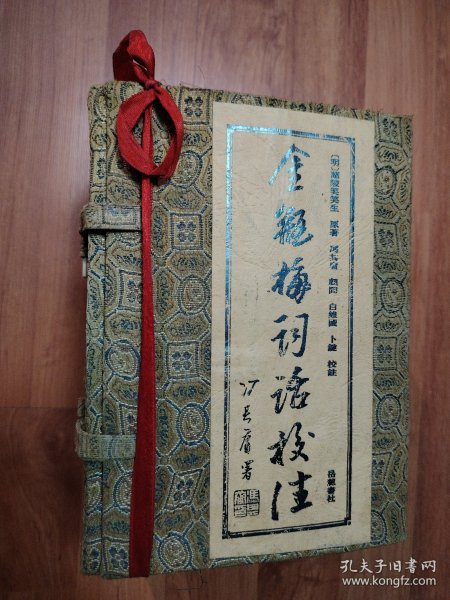 〔明〕蘭陵笑笑生 原著 馮其庸 顧問 白維國 卜鍵 校註
岳麓書社
金瓶梅词话校注
冯其庸署
孔夫子旧书网
www.kongfz.com